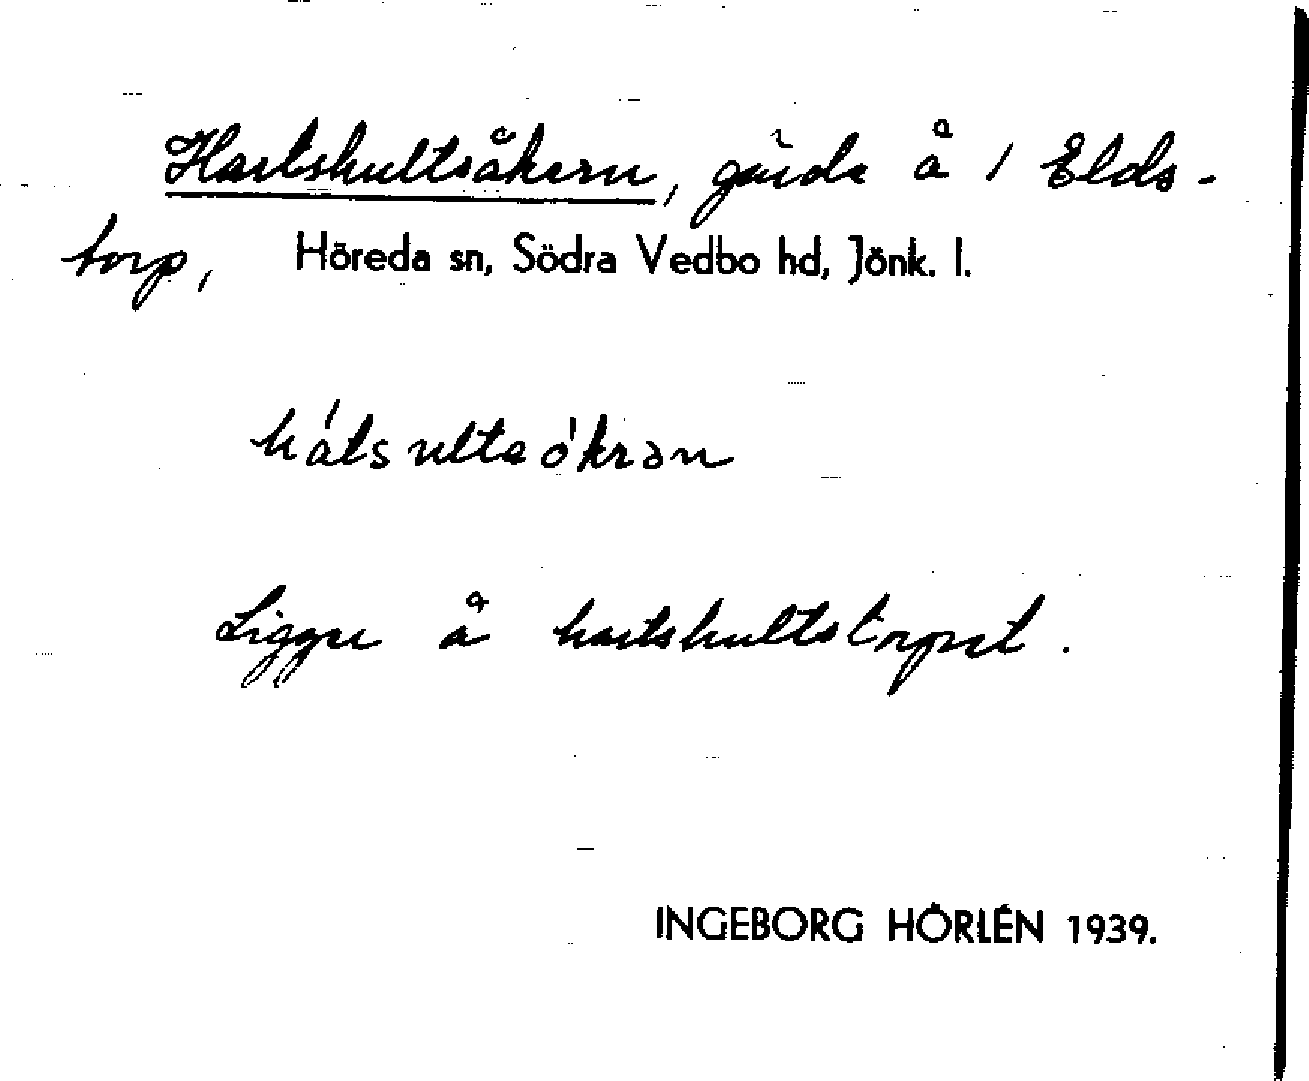 Hartshultsåkern, gärde å 1 Elds-
torp, Höreda sn, Södra Vedbo hd, Jönk. l.
hátsultsókrən
Ligger å hartshultstorpet.
INGEBORG HÖRLÉN 1939.